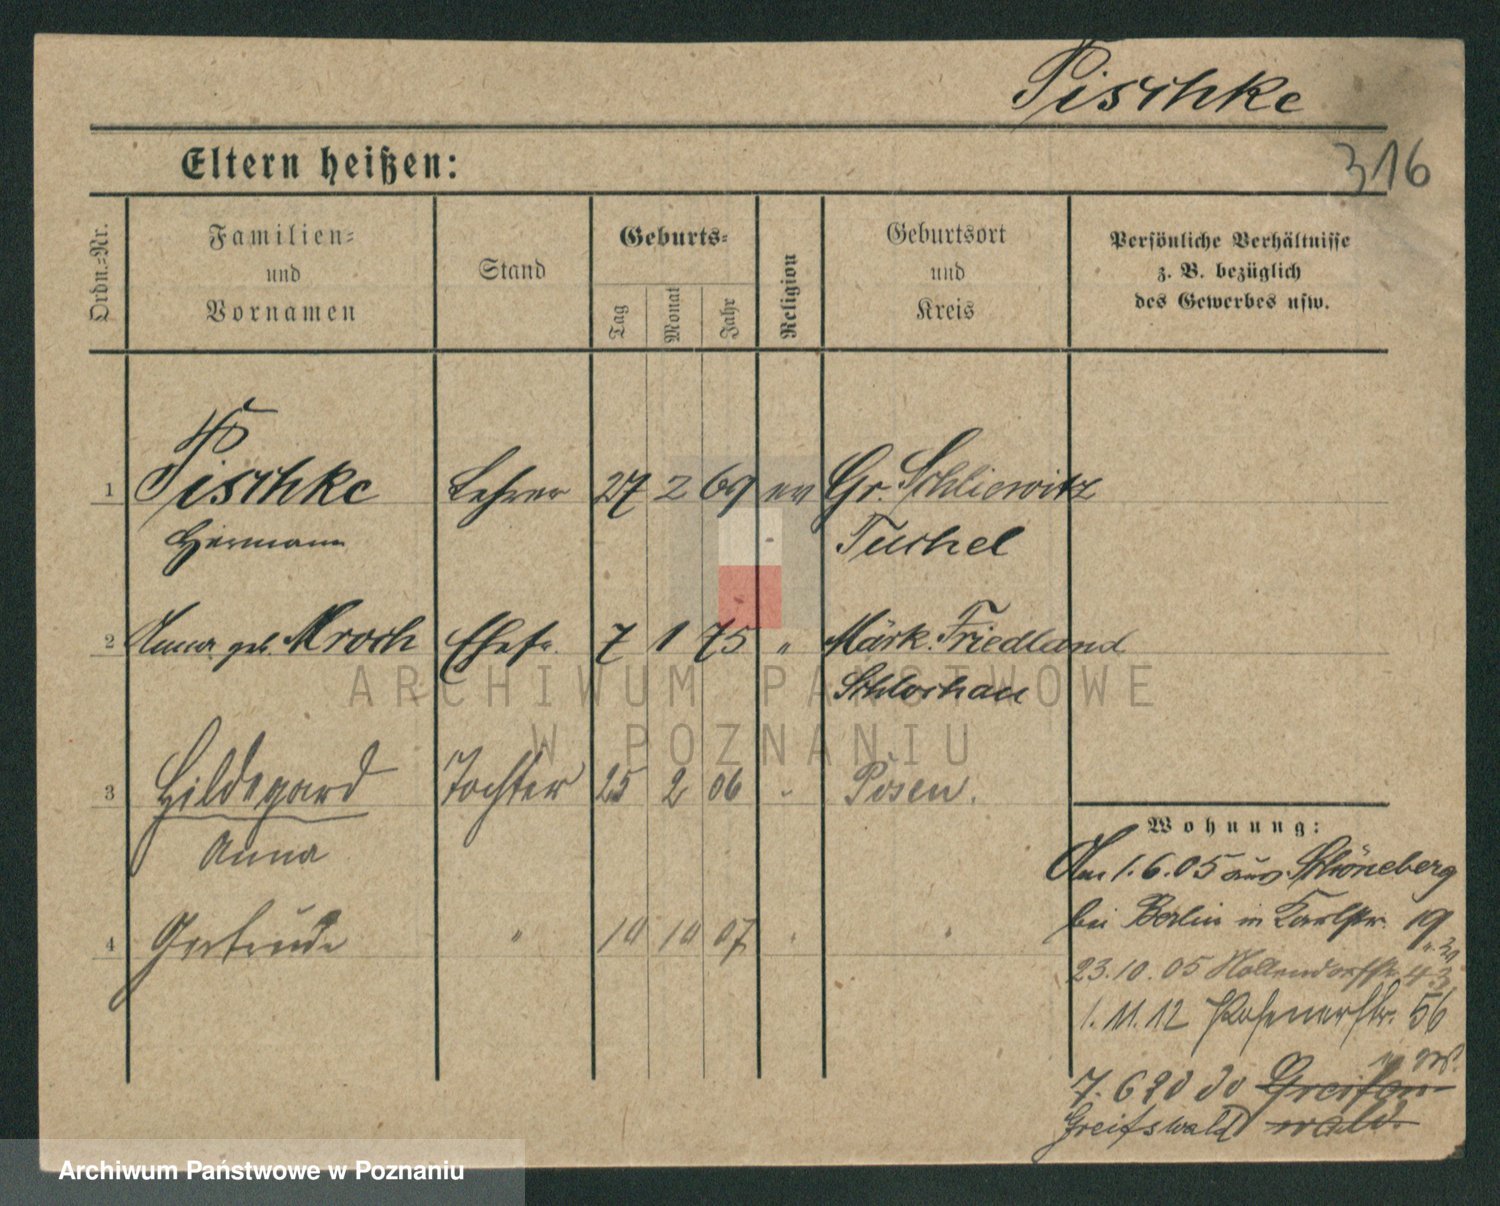 Pischke
316
Eltern heißen:
Ordn.-Nr.
Familien- und Vornamen
Stand
Geburts-
Tag
Monat
Jahr
Religion
Geburtsort und Kreis
Persönliche Verhältnisse
z. B. bezüglich
des Gewerbes usw.
1 Pischke Lehrer 27 2 69 ev Gr. Schliewitz
Hermann Tuchel
2 Anna geb. Kroch Ehefr. 7 1 75 " Märk. Friedland
Schlochau
3 Hildegard Tochter 25 2 06 " Posen.
Anna
4 Gertrude " 10 10 07 " "
Wohnung:
Am 1.6.05 aus Schöneberg
bei Berlin in Karlstr. 19
23.10.05 Hollendorffstr. 43
1.11.12 Posenerstr. 56
7.6 20 Greifs-
Greifswald wald.
ARCHIWUM PAŃSTWOWE
W POZNANIU
Archiwum Państwowe w Poznaniu